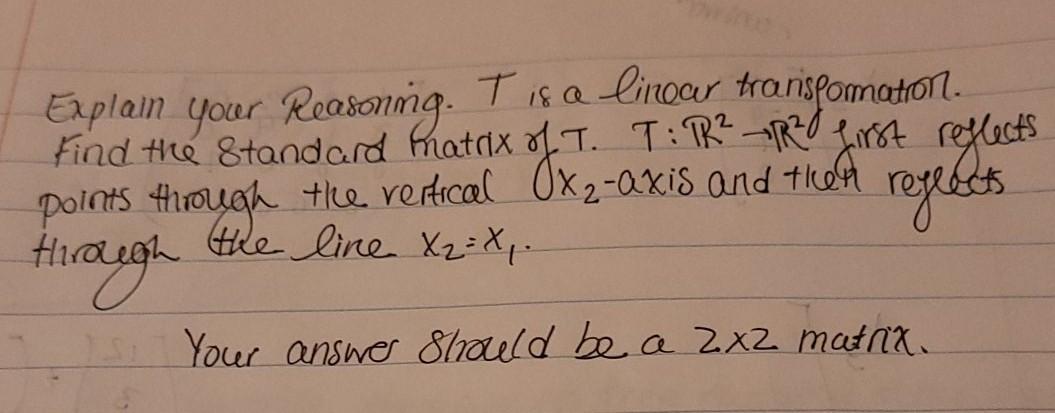 Explain your Reasoning. T is a linear transformation.
Find the Standard matrix of T. T: ℝ² → ℝ² first reflects
points through the vertical x₂-axis and then reflects
through the line x₂=x₁.
Your answer Should be a 2x2 matrix.